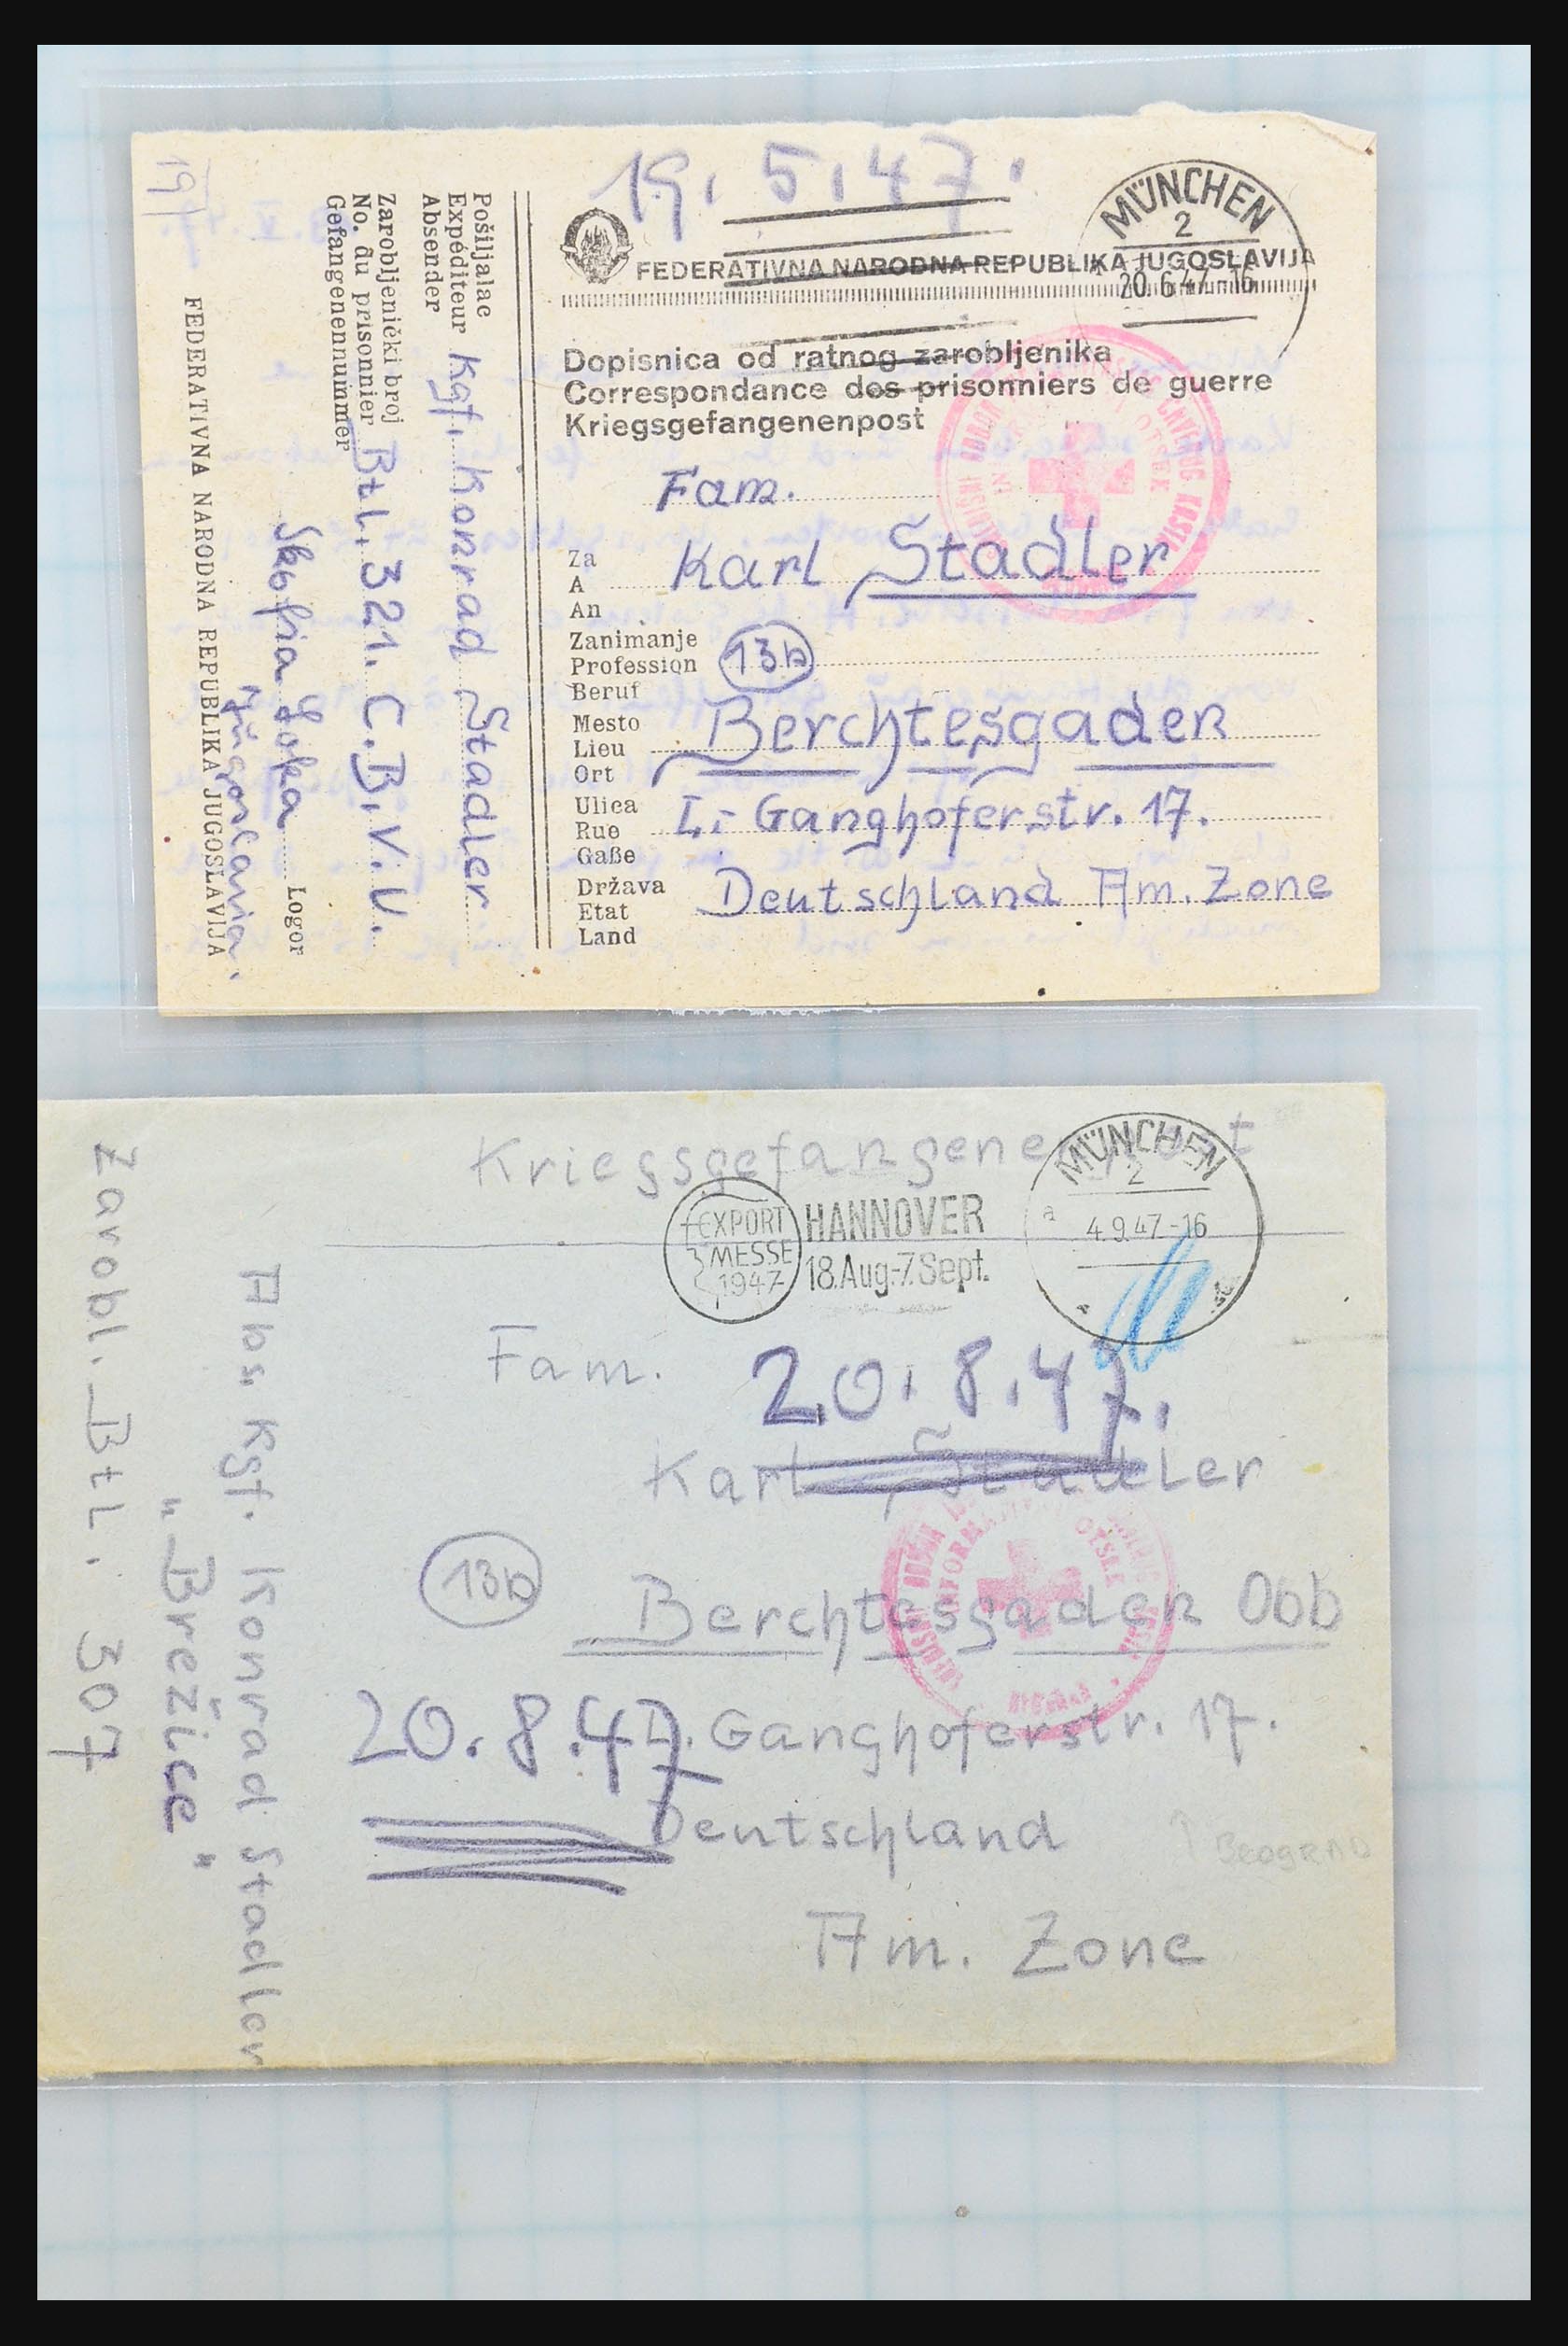 19. 5. 47.
MÜNCHEN
2
20.6.47-16
FEDERATIVNA NARODNA REPUBLIKA JUGOSLAVIJA
Dopisnica od ratnog zarobljenika
Correspondance des prisonniers de guerre
Kriegsgefangenenpost
Fam.
Za
A
An
Karl Stadler
Zanimanje
Profession
Beruf
13b
Mesto
Lieu
Ort
Berchtesgaden
Ulica
Rue
Gaße
L.- Ganghoferstr. 17.
Država
Etat
Land
Deutschland Am. Zone
Pošiljalac
Expéditeur
Absender
Kgf. Konrad Stadler
Zarobljenički broj
No. du prisonnier
Gefangenennummer
Btl. 321. C.B.V.U.
Skofia Loka
Logor
Jugoslavia.
FEDERATIVNA NARODNA REPUBLIKA JUGOSLAVIJA
Kriegsgefangenenpost
EXPORT
MESSE
1947
HANNOVER
18.Aug.-7.Sept.
MÜNCHEN
2
a
4.9.47-16
Fam.
20. 8. 47.
Karl Stadler
13b
Berchtesgaden Obb
20. 8. 47
L. Ganghoferstr. 17.
Deutschland
Beograd
Am. Zone
Abs. Kgf. Konrad Stadler
„Brežice"
Zarobl. Btl. 307